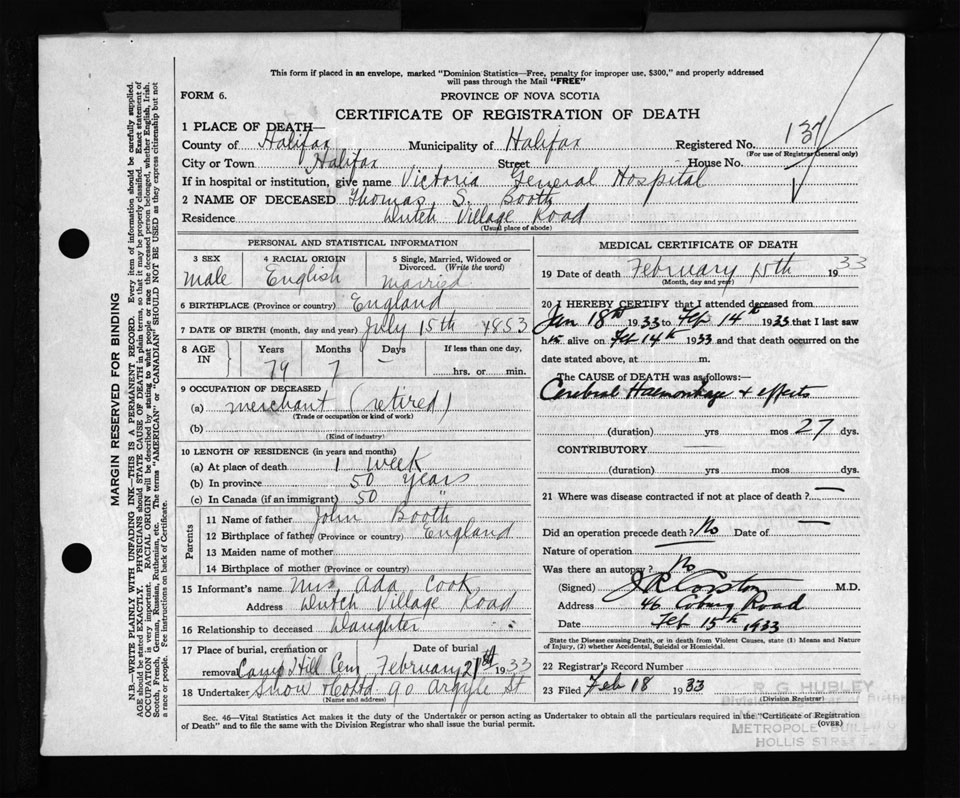 This form if placed in an envelope, marked "Dominion Statistics—Free, penalty for improper use, $300," and properly addressed
will pass through the Mail "FREE"
FORM 6.
PROVINCE OF NOVA SCOTIA
CERTIFICATE OF REGISTRATION OF DEATH
1 PLACE OF DEATH—
County of Halifax Municipality of Halifax Registered No. 137
(For use of Registrar General only)
City or Town Halifax Street House No.
If in hospital or institution, give name Victoria General Hospital
2 NAME OF DECEASED Thomas S. Booth
Residence Dutch Village Road
(Usual place of abode)
PERSONAL AND STATISTICAL INFORMATION
3 SEX 4 RACIAL ORIGIN 5 Single, Married, Widowed or
Divorced. (Write the word)
Male English Married
6 BIRTHPLACE (Province or country) England
7 DATE OF BIRTH (month, day and year) July 15th 1853
8 AGE IN Years Months Days If less than one day,
79 7 — hrs. or min.
9 OCCUPATION OF DECEASED
(a) merchant (retired)
(Trade or occupation or kind of work)
(b)
(Kind of industry)
10 LENGTH OF RESIDENCE (in years and months)
(a) At place of death 1 week
(b) In province 50 years
(c) In Canada (if an immigrant) 50 "
Parents
11 Name of father John Booth
12 Birthplace of father (Province or country) England
13 Maiden name of mother
14 Birthplace of mother (Province or country)
15 Informant's name Mrs Ada Cook
Address Dutch Village Road
16 Relationship to deceased Daughter
17 Place of burial, cremation or Date of burial
removal Camp Hill Cem February 21st 1933
18 Undertaker Snow & Co Ltd 90 Argyle St
(Name and address)
MEDICAL CERTIFICATE OF DEATH
19 Date of death February 15th 1933
(Month, day and year)
20 I HEREBY CERTIFY that I attended deceased from
Jan 18th 1933 to Feb 14th 1933 that I last saw
him alive on Feb 14th 1933 and that death occurred on the
date stated above, at m.
The CAUSE OF DEATH was as follows:—
Cerebral Haemorrhage & effects
(duration) yrs mos 27 dys.
CONTRIBUTORY
(duration) yrs mos dys.
21 Where was disease contracted if not at place of death? —
Did an operation precede death? No Date of —
Nature of operation —
Was there an autopsy? No
(Signed) J R Corston M.D.
Address 46 Coburg Road
Date Feb 15th 1933
State the Disease causing Death, or in death from Violent Causes, state (1) Means and Nature
of Injury, (2) whether Accidental, Suicidal or Homicidal.
22 Registrar's Record Number
23 Filed Feb 18 1933
R. G. HUBLEY
(Division Registrar)
METROPOLE BUILDING
HOLLIS STREET
Sec. 46—Vital Statistics Act makes it the duty of the Undertaker or person acting as Undertaker to obtain all the particulars required in the "Certificate of Registration
of Death" and to file the same with the Division Registrar who shall issue the burial permit.
(OVER)
MARGIN RESERVED FOR BINDING
N.B.—WRITE PLAINLY WITH UNFADING INK—THIS IS A PERMANENT RECORD. Every item of information should be carefully supplied.
AGE should be stated EXACTLY. PHYSICIANS should STATE CAUSE OF DEATH in plain terms, so that it may be properly classified. Exact statement of
OCCUPATION is very important. RACIAL ORIGIN will be described by stating to what people or race the deceased person belonged, whether English, Irish,
Scotch, French, German, Russian, Ruthenian, etc. The terms "AMERICAN" or "CANADIAN" SHOULD NOT BE USED as they express citizenship but not
a race or people. See instructions on back of Certificate.